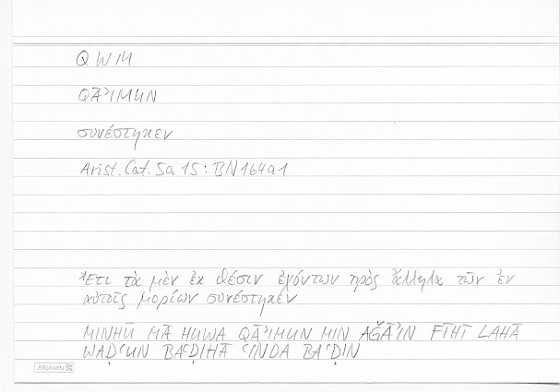 QWM
QĀʾIMUN
συνέστηκεν
Arist. Cat. 5a 15 : BN 164a1
Ἔτι τὰ μὲν ἐκ θέσιν ἐχόντων πρὸς ἄλληλα τῶν ἐν
αὐτοῖς μορίων συνέστηκεν
MINHŪ MĀ HUWA QĀʾIMUN MIN AǦZĀʾIN FĪHI LAHĀ
WAḌʿUN BAʿḌIHĀ ʿINDA BAʿḌIN
BRUNNEN